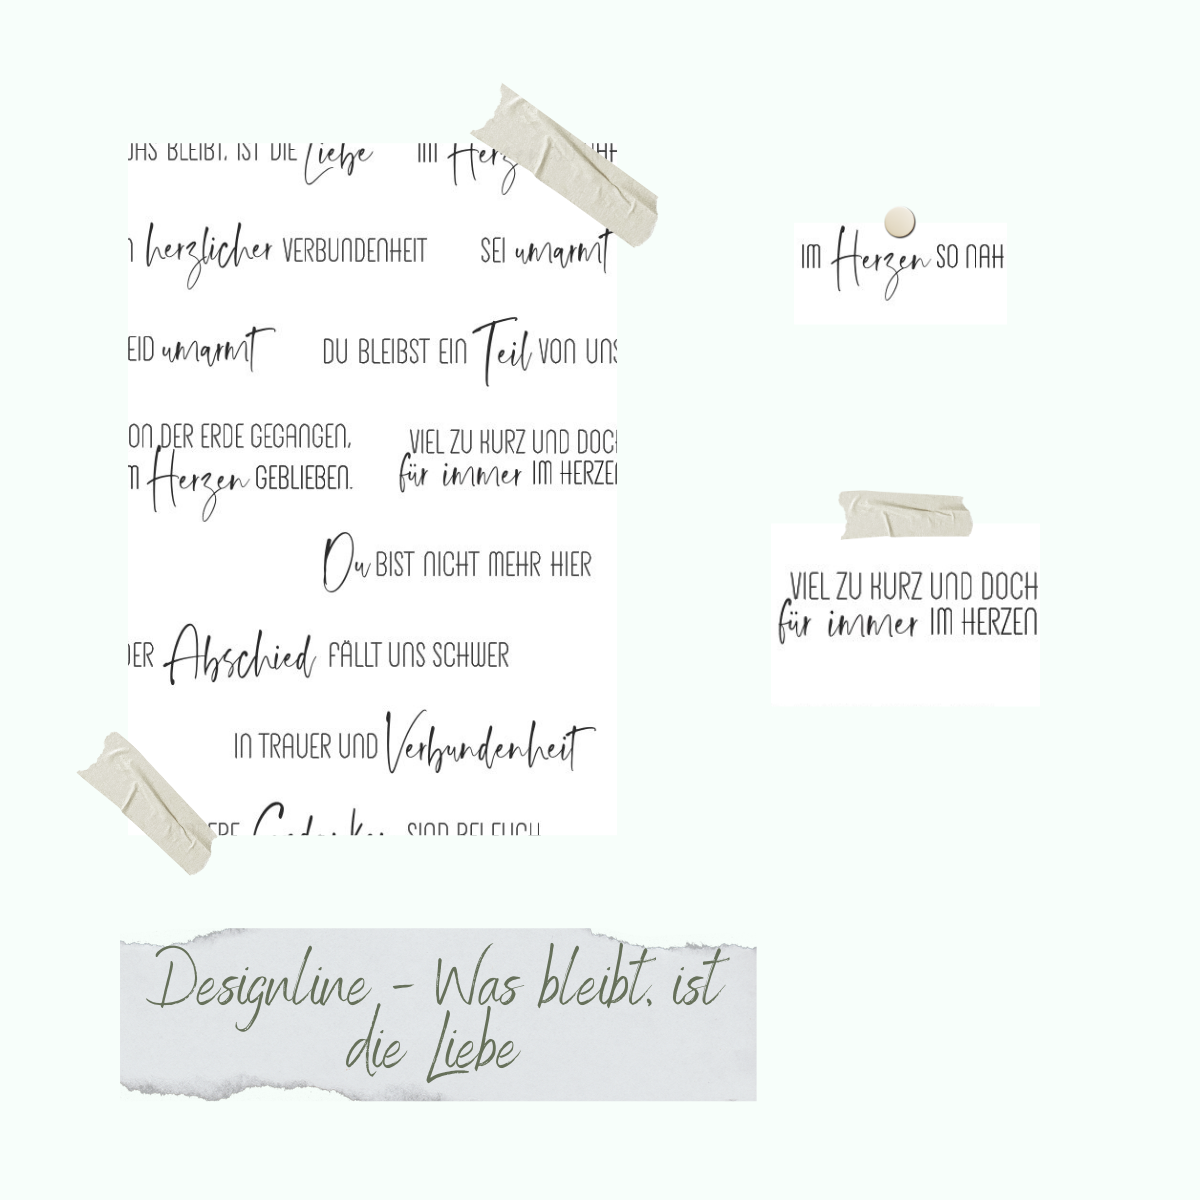 BLEIBT, IST DIE Liebe IM
herzlicher VERBUNDENHEIT SEI umarmt
umarmt DU BLEIBST EIN Teil VON UNS
DER ERDE GEGANGEN,
Herzen GEBLIEBEN.
VIEL ZU KURZ UND DOCH
für immer IM HERZEN
Du BIST NICHT MEHR HIER
Abschied FÄLLT UNS SCHWER
IN TRAUER UND Verbundenheit
IM Herzen SO NAH
VIEL ZU KURZ UND DOCH
für immer IM HERZEN
Designline - Was bleibt, ist
die Liebe